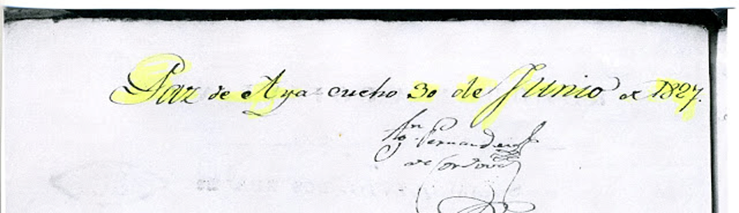 Paz de Ayacucho 30 de Junio de 1827.
Fernandez
de Cordova